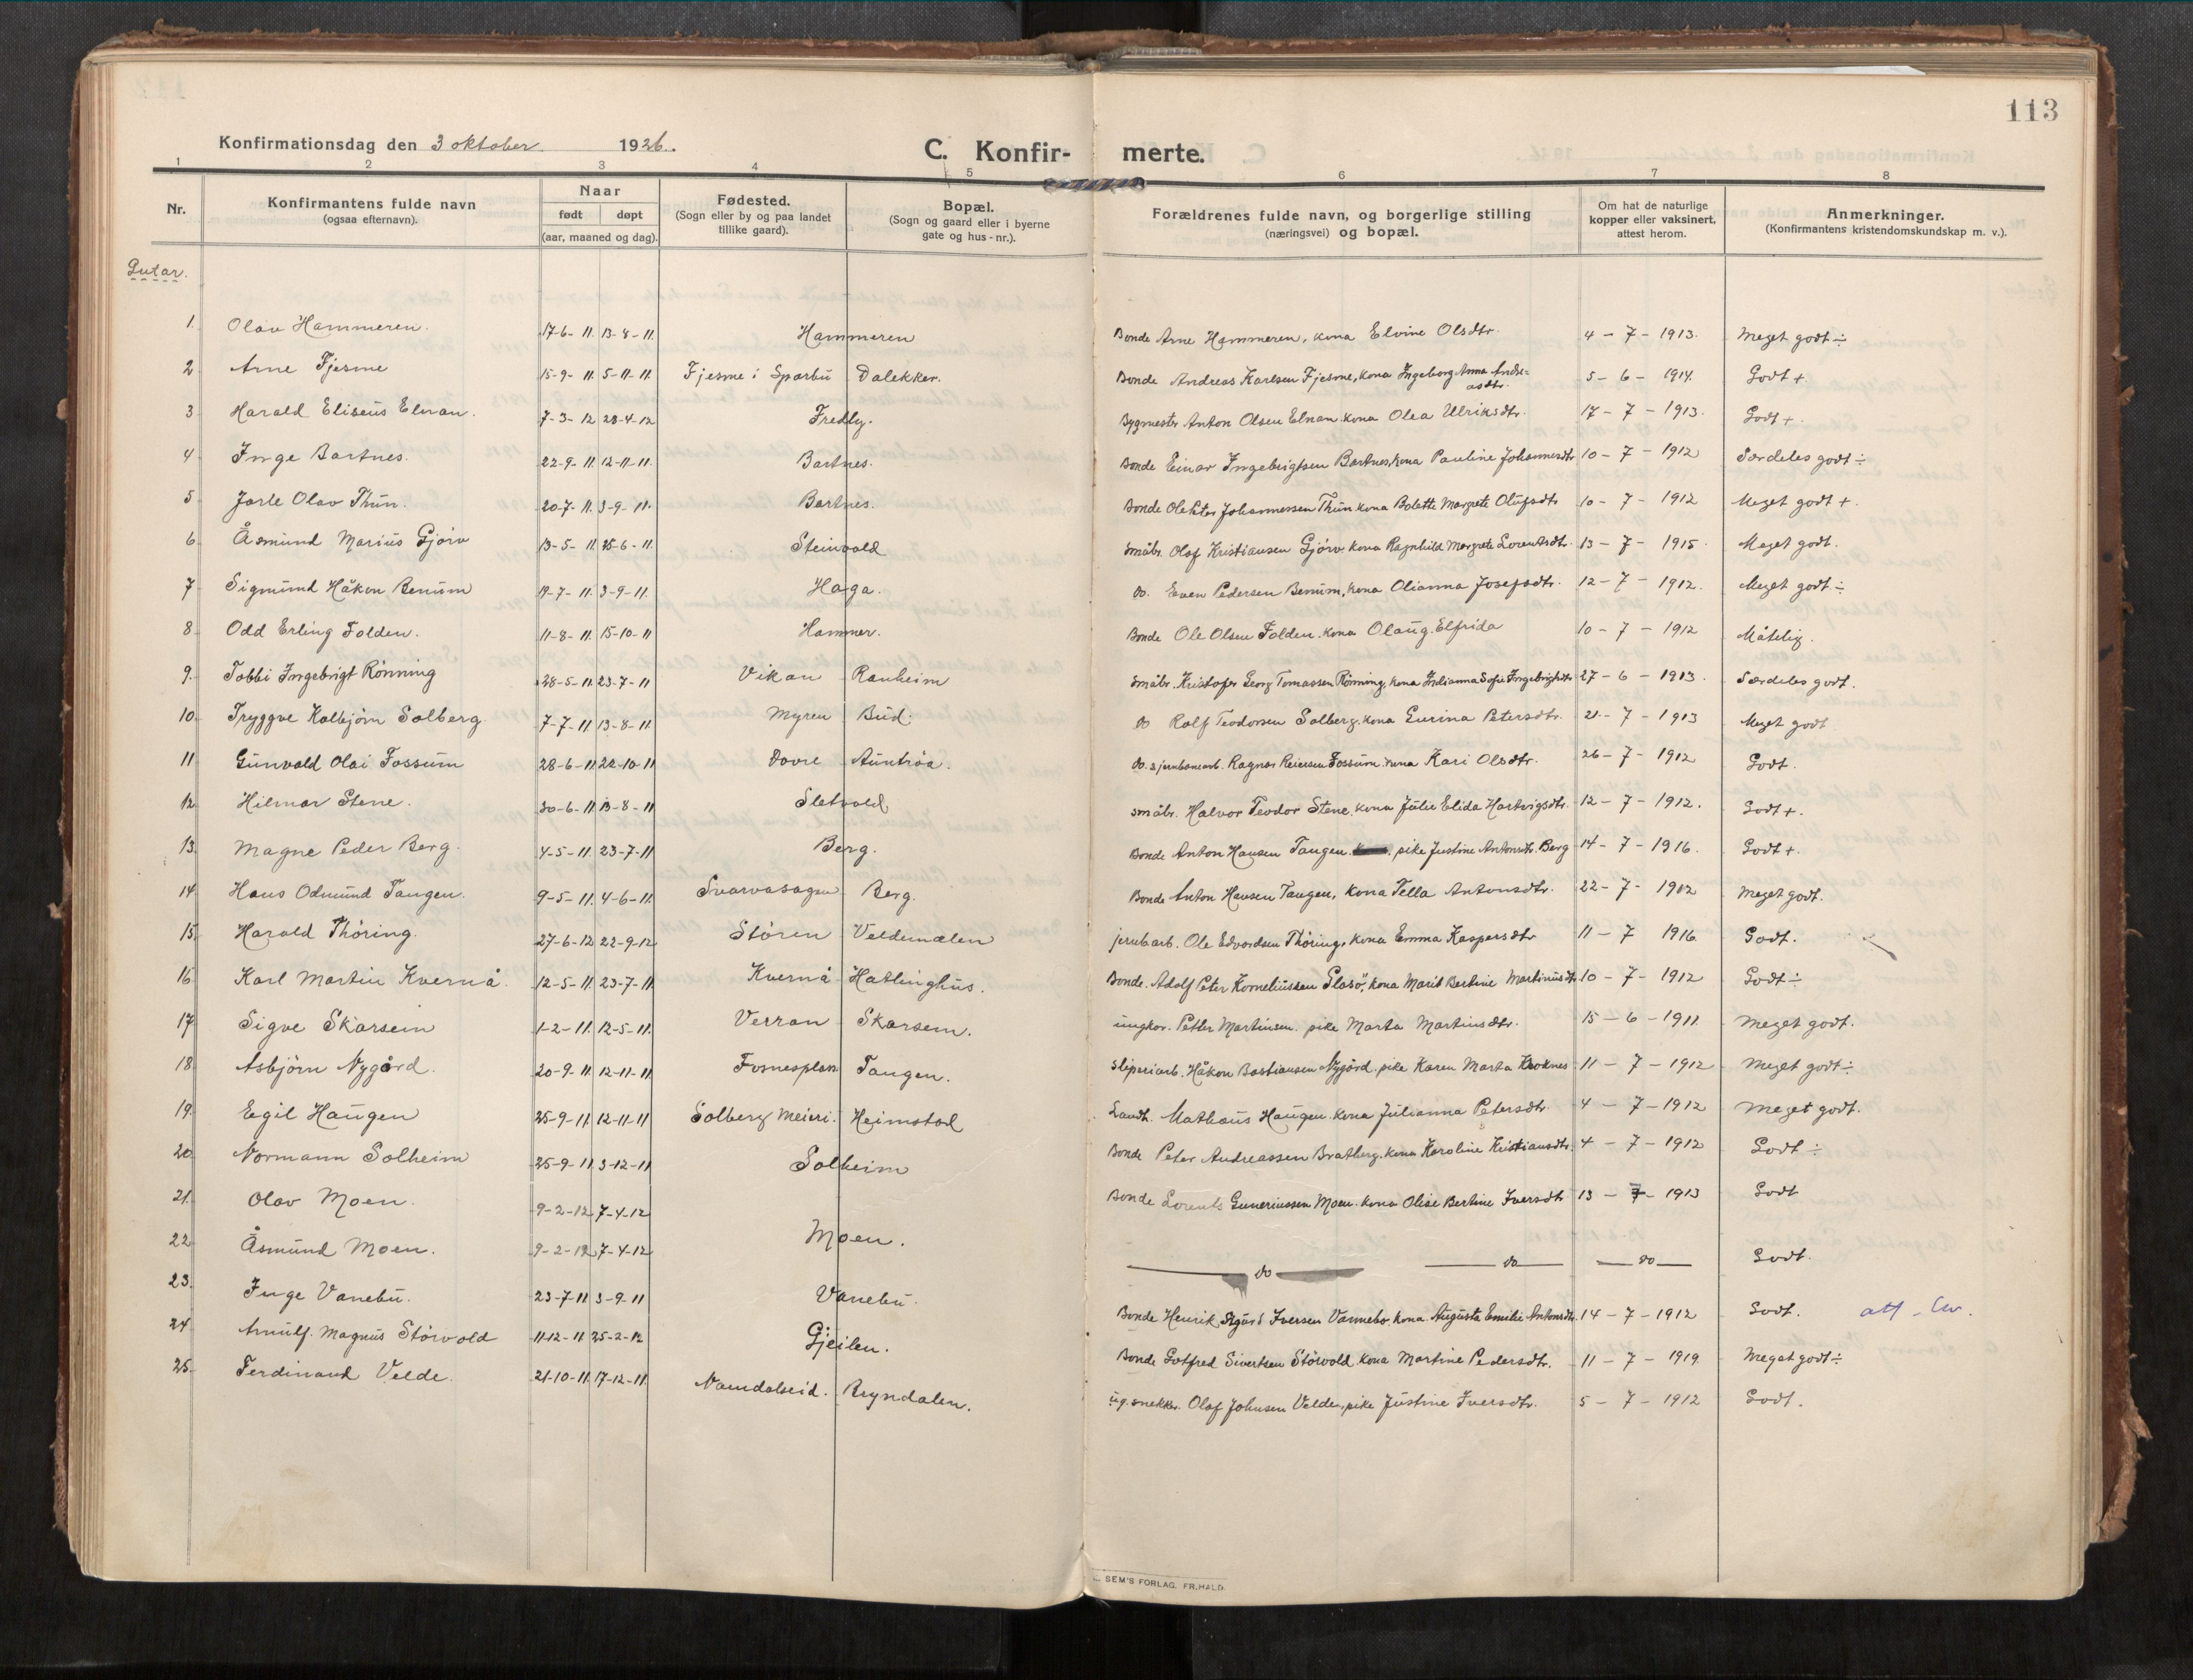 113
Konfirmationsdag den 3 oktober. 1926.
C. Konfir- merte.
1 2 3 4 5 6 7 8
Nr.
Konfirmantens fulde navn
(ogsaa efternavn).
Naar
født døpt
(aar, maaned og dag).
Fødested.
(Sogn eller by og paa landet
tillike gaard).
Bopæl.
(Sogn og gaard eller i byerne
gate og hus-nr.).
Forældrenes fulde navn, og borgerlige stilling
(næringsvei) og bopæl.
Om hat de naturlige
kopper eller vaksinert,
attest herom.
Anmerkninger.
(Konfirmantens kristendomskundskap m. v.).
Gutar.
1. Olav Hammeren. 17-6-11. 13-8-11. Hammeren Bonde Arne Hammeren, kona Elvine Olsdtr. 4-7-1913. Meget godt ÷
2 Arne Fjesme 15-9-11. 5-11-11. Fjesme i Sparbu Dalekker. Bonde Andreas Karlsen Fjesme, kona Ingeborg Anna Andre=
asdtr. 5-6-1914. Godt +
3 Harald Eliseus Elnan. 7-3-12 28-4-12 Fredly. Bygmester Anton Olsen Elnan. kona Olea Ulriksdtr. 17-7-1913. Godt +.
4 Inge Bartnes. 22-9-11. 12-11-11. Bartnes. Bonde Einar Ingebrigtsen Bartnes, kona Pauline Johannesdtr 10-7-1912 Særdeles godt ÷
5 Jarle Olav Thun. 20-7-11. 3-9-11. Bartnes. Bonde Johannessen Thun kona Bolette Margrete Olufsdtr 10-7-1912 Meget godt +.
6 Åsmund Marius Gjörv 13-5-11. 25-6-11. Steinvold Småbr. Olaf Kristiansen Gjörv kona Ragnhild Margrete Lorentsdtr. 13-7-1915. Meget godt.
7 Sigmund Håkon Benum 19-7-11. 3-9-11. Haga. Do. Even Pedersen Benum, kona Olianna Josefsdtr. 12-7-1912. Meget godt ÷
8 Odd Erling Folden. 11-8-11. 15-10-11 Hammer. Bonde Ole Olsen Folden. kona Olaug Elfrida 10-7-1912 Måtelig.
9. Tobbi Ingebrigt Rönning 28-5-11. 23-7-11 Vikan Ranheim Småbr. Kristofer Georg Tomassen Rönning, kona Indianna Sofie Ingebrigtsdtr 27-6-1913. Særdeles godt.
10. Tryggve Kolbjörn Solberg 7-7-11. 13-8-11. Myren Bud. Do Rolf Teodorsen Solberg. kona Gurina Petersdtr. 21-7-1913 Meget godt
11 Gunvald Olai Fossum 28-6-11. 22-10-11 Dovre Auntröa. Do. & jernbanearb. Ragnar Reiersen Fossum. kona Kari Olsdtr. 26-7-1912 Godt.
12. Hilmar Stene. 30-6-11. 13-8-11 Sletvold Småbr. Halvor Teodor Stene, kona Julie Elida Hartvigsdtr. 12-7-1912. Godt +.
13. Magne Peder Berg. 4-5-11. 23-7-11 Berg. Bonde Anton Hansen Tangen. pike Justine Antonsdtr. Berg 14-7-1916. Godt +.
14. Hans Odmund Tangen. 9-5-11. 4-6-11. Svarvasagen Berg. Bonde Anton Hansen Tangen, kona Tella Antonsdtr. 22-7-1912 Meget godt.
15. Harald Thöring. 27-6-12 22-9-12 Stören Veldemælen jernb.arb. Ole Edvardsen Thöring, kona Emma Kaspersdtr 11-7 1916. Godt.
16 Karl Martin Kvernå. 12-5-11. 23-7-11 Kvernå Hatlinghus. Bonde. Adolf Peter Korneliussen Glasö, kona Marit Bertine Martinusdtr 10-7-1912 Godt ÷
17 Sigve Skarsem 1-2-11. 12-5-11. Verran Skarsem. ungkar. Petter Martinsen. pike Marta Martinsdtr. 15-6-1911. Meget godt.
18. Asbjörn Nygård. 20-9-11. 12-11-11. Fosnesplass Tangen. Sliperiarb. Håkon Bastiansen Nygård. pike Karen Marta Kroknes 11-7-1912 Meget godt ÷
19. Eegil Haugen 25-9-11. 12-11-11 Solberg Meieri. Heimstad Landh. Mathæus Haugen. kona Julianna Petersdtr. 4-7-1912 Meget godt.
20. Normann Solheim 25-9-11. 3-12-11 Solheim Bonde Peter Andreassen Bratberg. kona Karoline Kristiansdtr. 4-7-1912 Godt ÷
21. Olav Moen. 9-2-12 7-4-12 Bonde Lorents Guneriussen Moen. kona Olise Bertine Iversdtr 13-7-1913 Godt
22 Åsmund Moen. 9-2-12 7-4-12 Moen. do do do Godt.
23. Inge Vanebu. 23-7-11 3-9-11 Vanebu. Bonde Henrik Sigurd Iversen Vannebo. kona Augusta Emilie Antonsdtr. 14-7-1912 Godt. att.
24. Arnulf Magnus Störvold 11-12-11 25-2-12 Gjeilen. Bonde Gotfred Sivertsen Störvold kona Martine Pedersdtr. 11-7-1919. Meget godt ÷
25. Ferdinand Velde. 21-10-11. 17-12-11. Namdalseid. Bryndalen. ug. snekker. Olaf Johnsen Velde, pike Justine Iversdtr. 5-7-1912 Godt.
SEM'S FORLAG. FR.HALD.